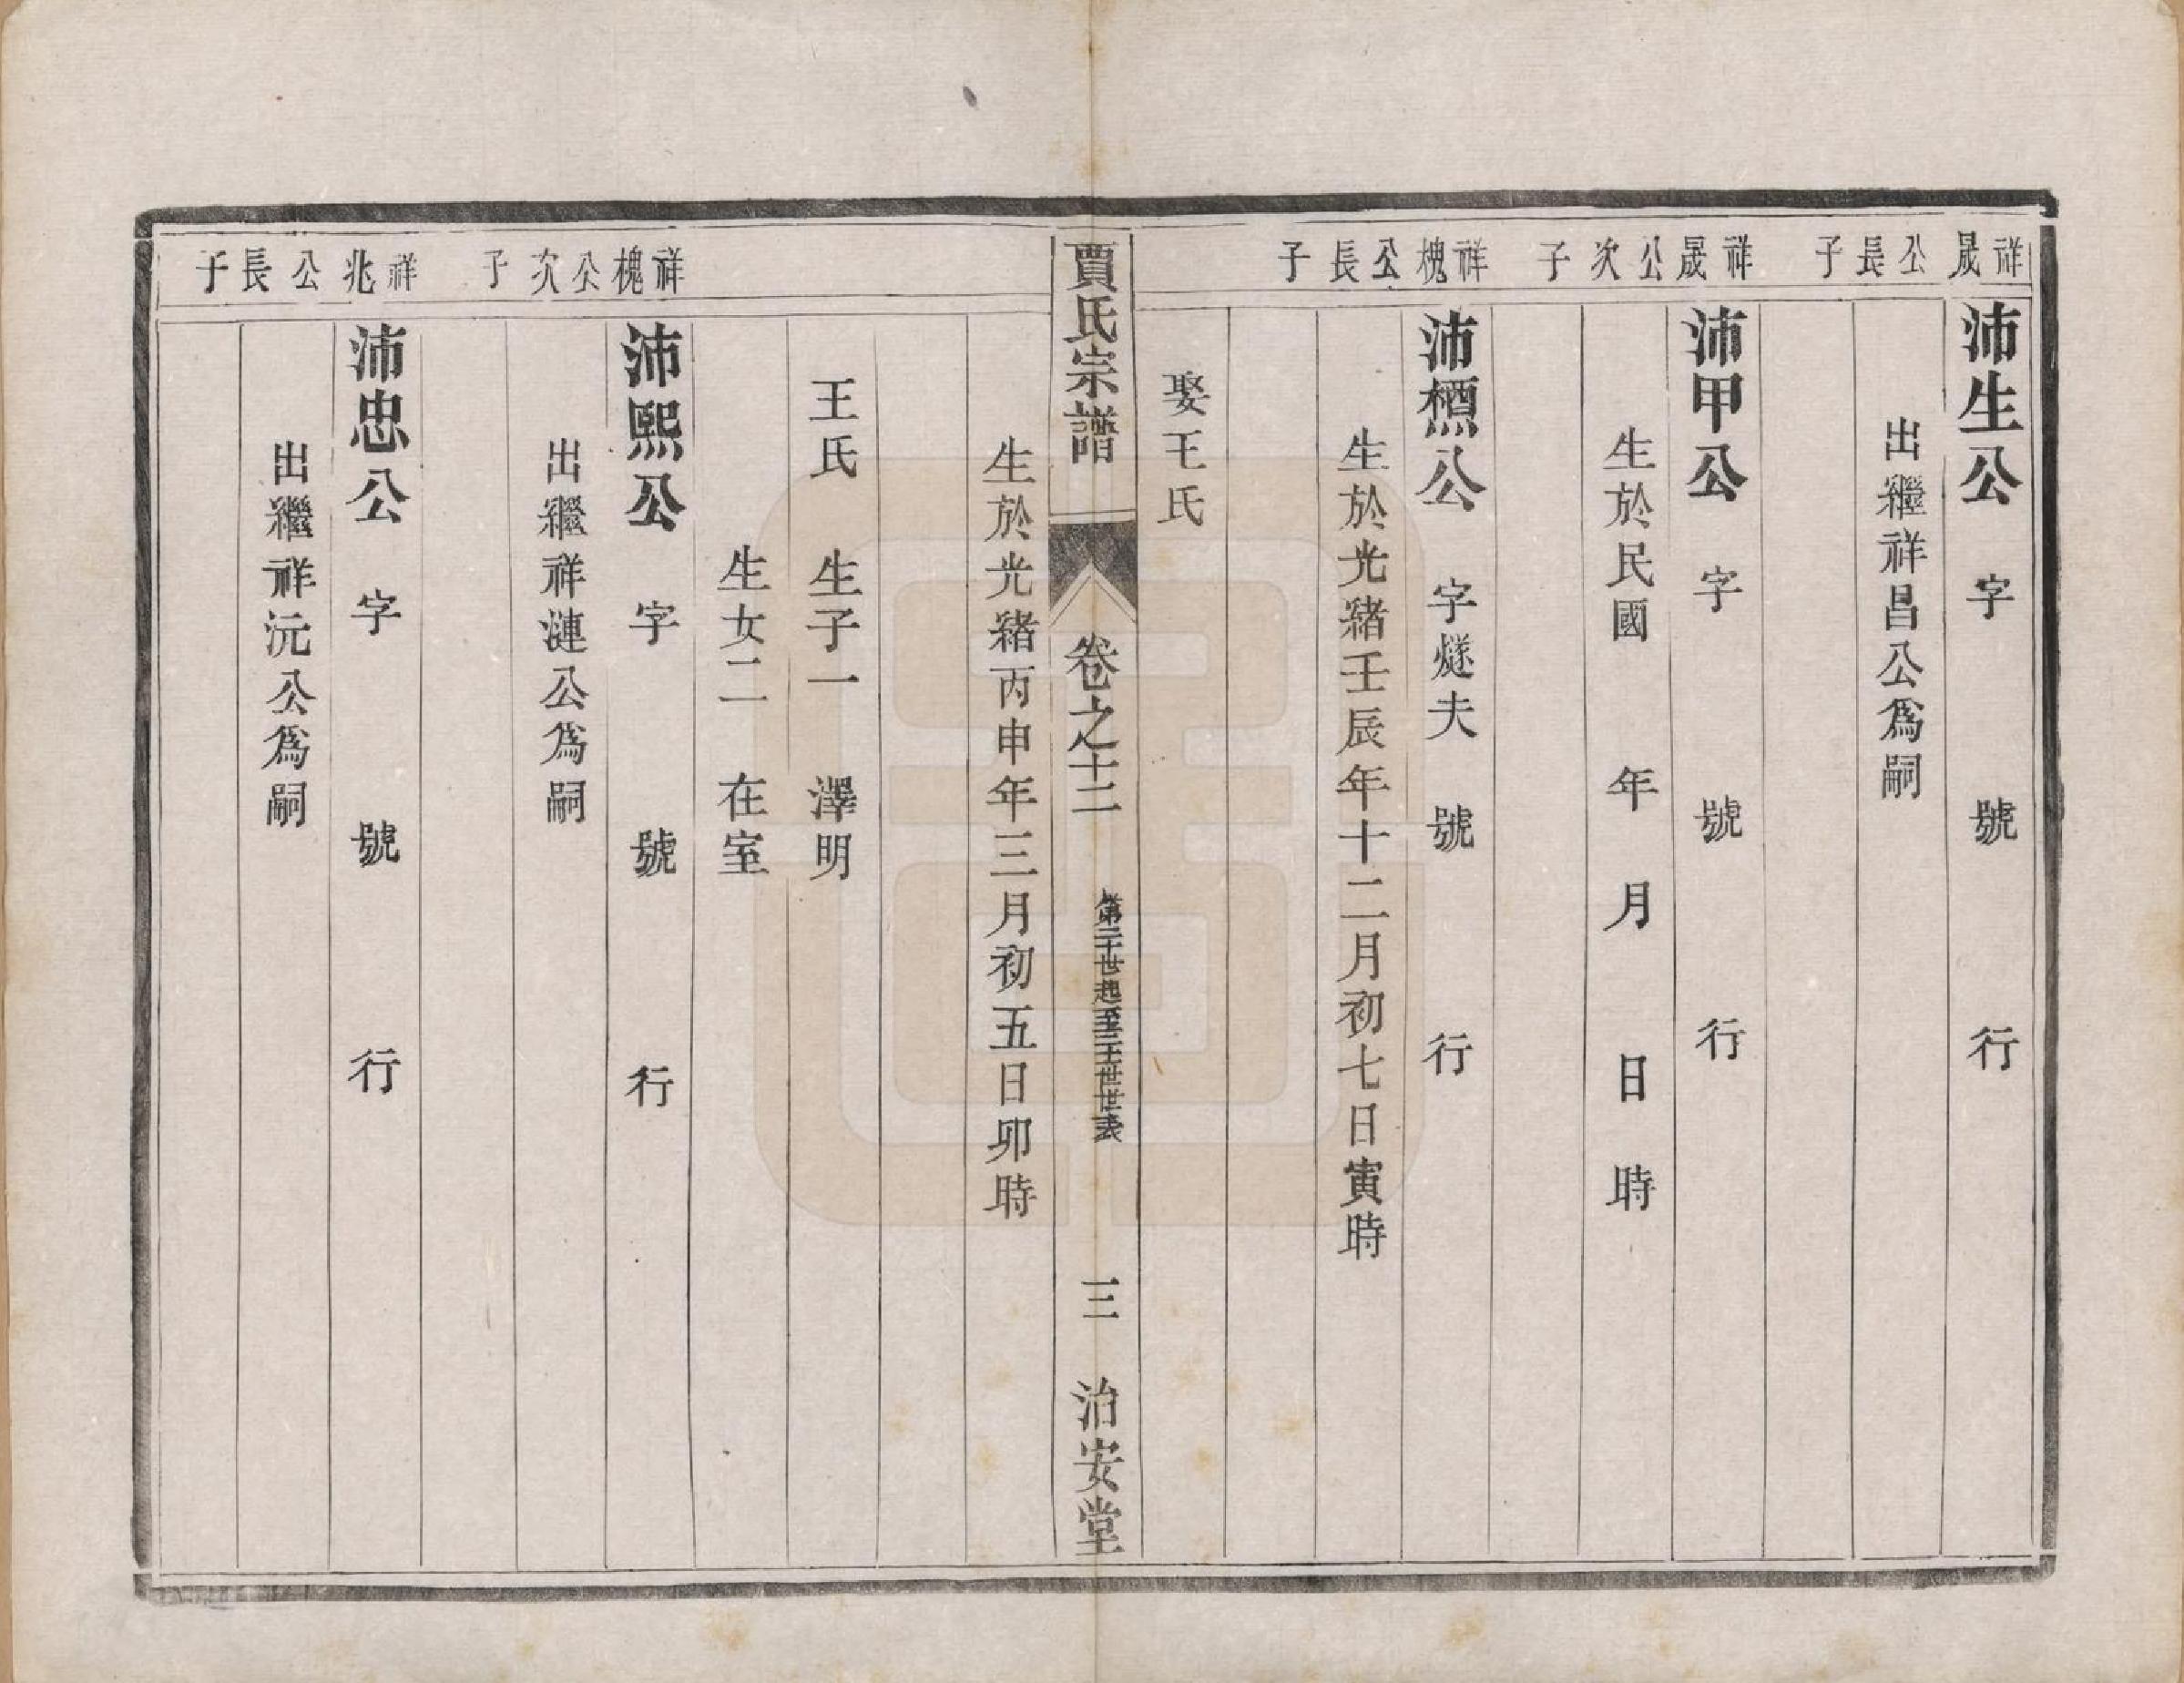 祥晟公長子
沛生公 字 號 行
出繼祥昌公為嗣
祥晟公次子
沛甲公 字 號 行
生於民國 年 月 日 時
祥槐公長子
沛槱公 字燧夫 號 行
生於光緒壬辰年十二月初七日寅時
娶王氏
賈氏宗譜 卷之十二 第二十世起至二十三世世表 三 治安堂
生於光緒丙申年三月初五日卯時
王氏 生子一 澤明
生女二 在室
祥槐公次子
沛熙公 字 號 行
出繼祥漣公為嗣
祥兆公長子
沛忠公 字 號 行
出繼祥沅公為嗣